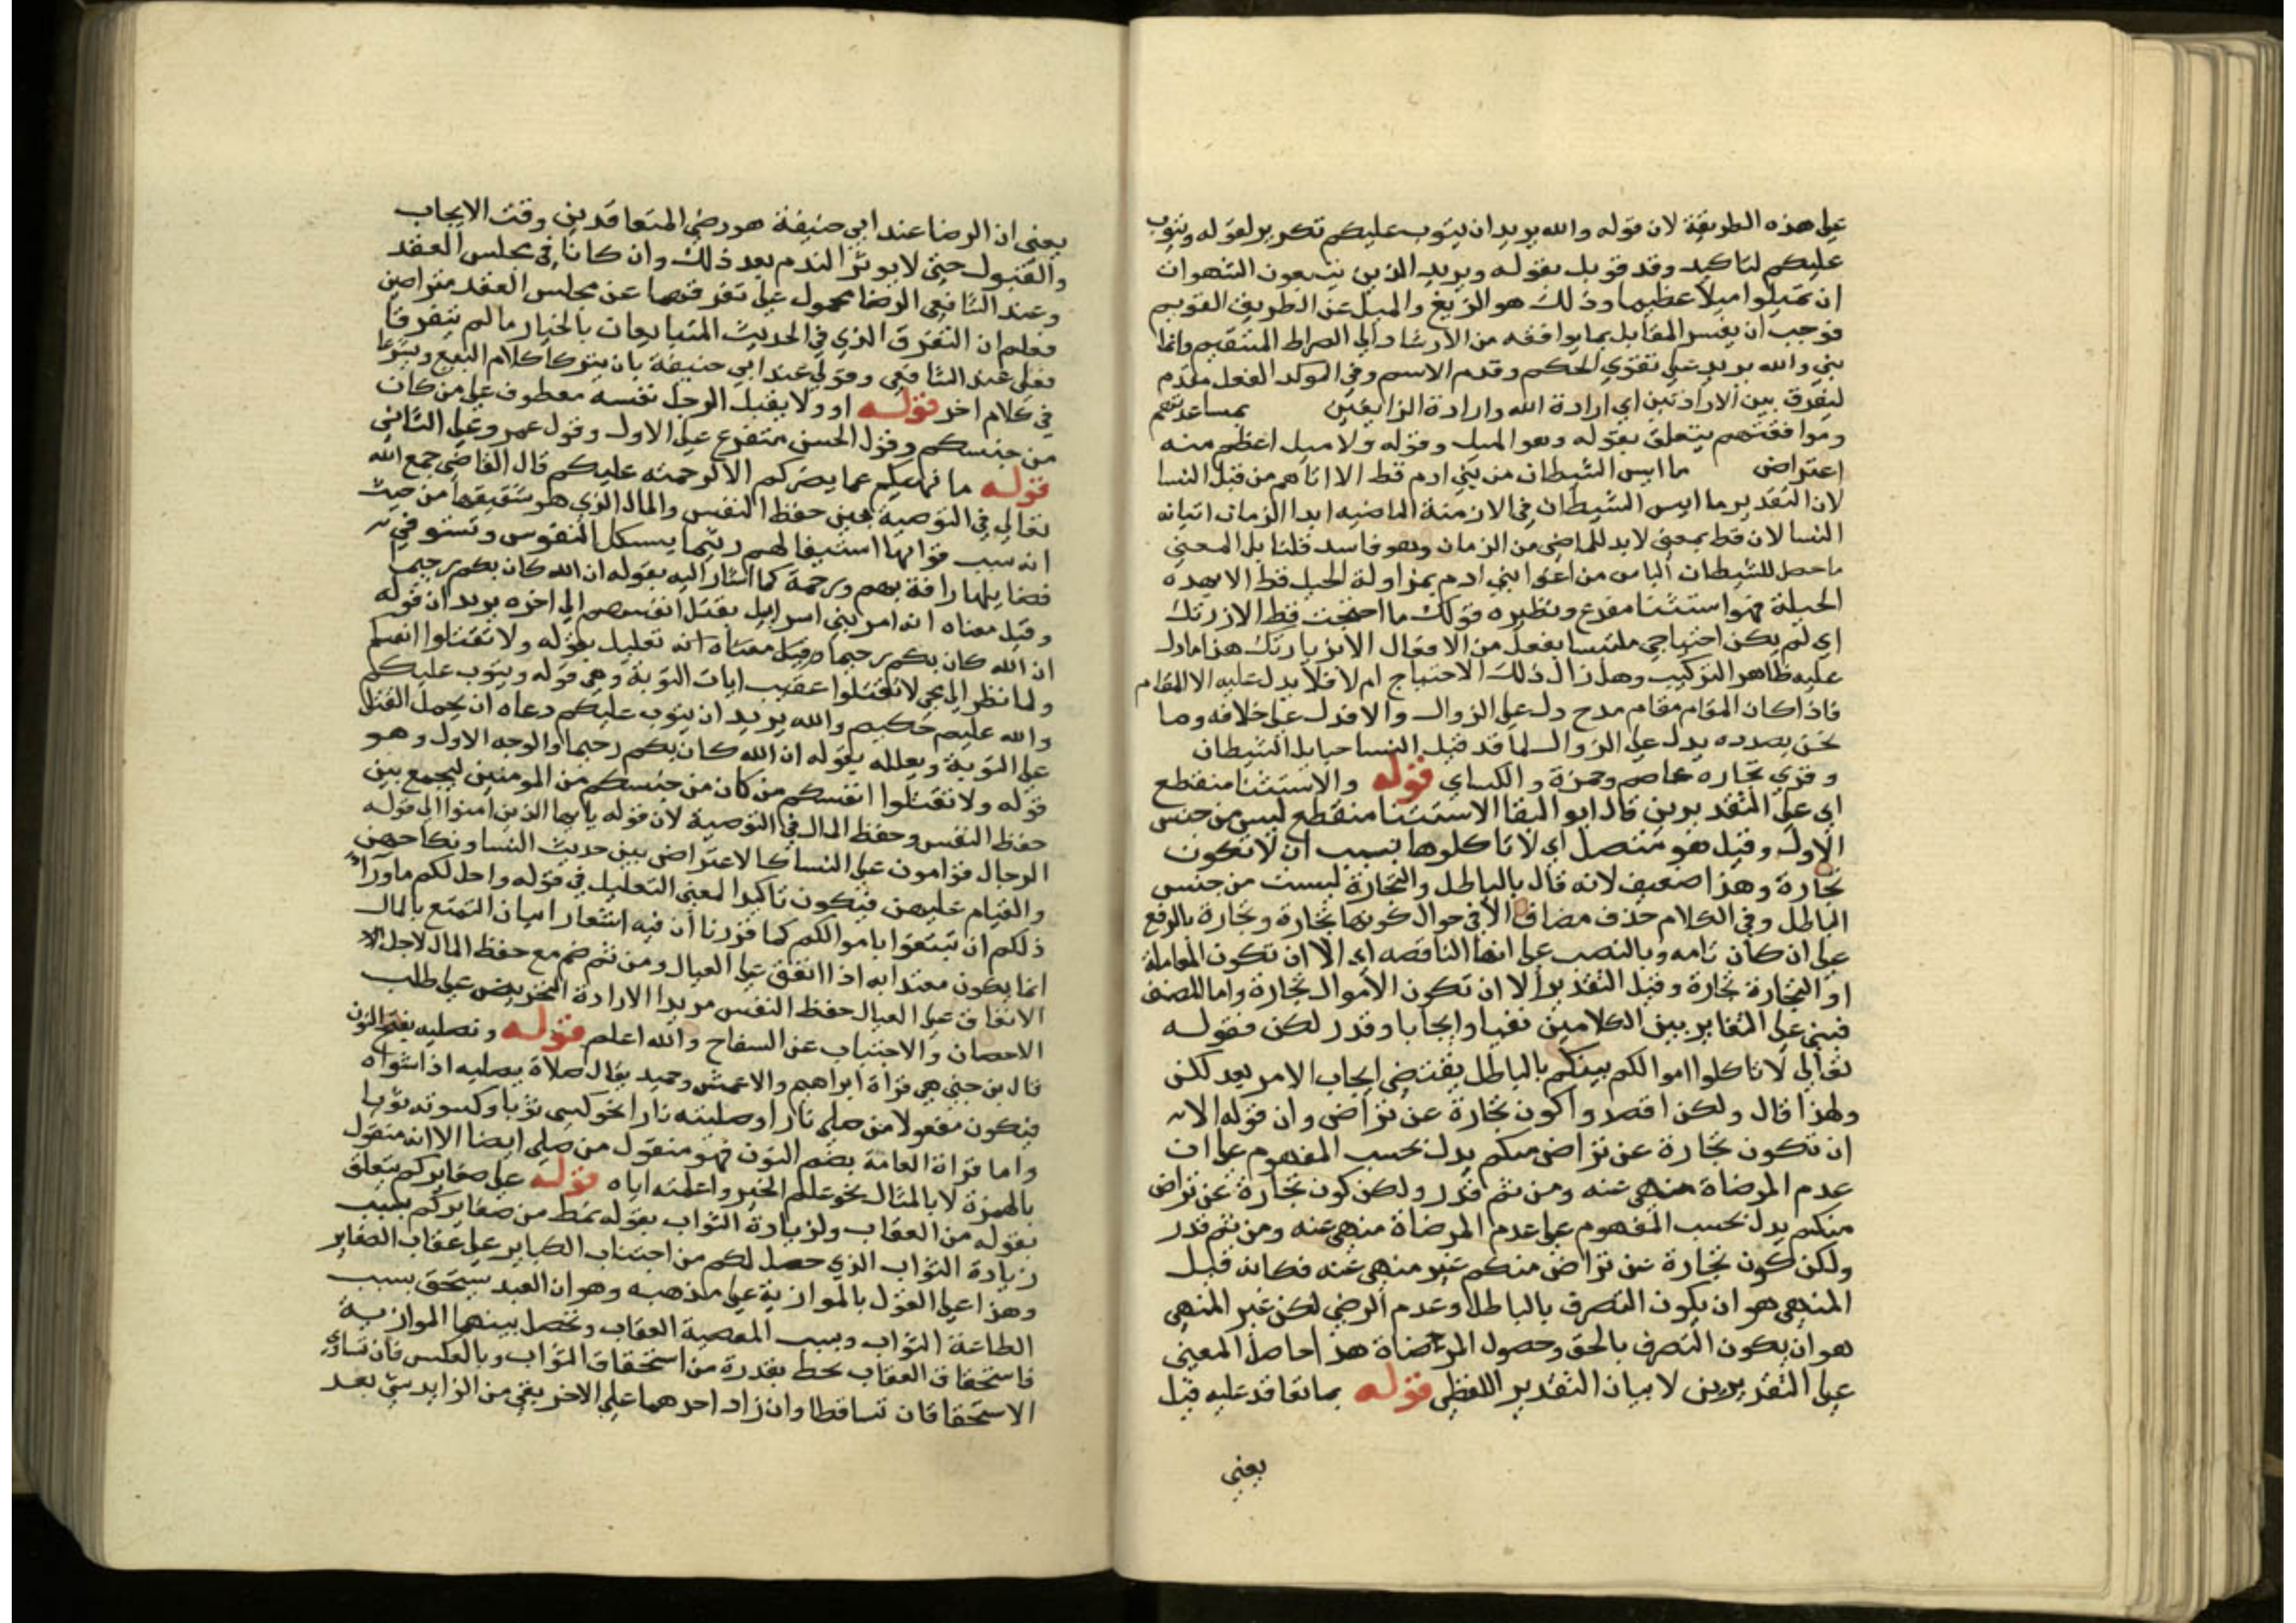 على هذه الطريقة لان قوله والله يريد ان يتوب عليكم تكرير لقوله ويتوب
عليكم لتاكيد وقد قوبل بقوله ويريد الذين يتبعون الشهوات
ان تميلوا ميلا عظيما وذلك هو الزيغ والميل عن الطريق القويم
فوجب ان يفسر المقابل بما يوافقه من الارشاد الي الصراط المستقيم وانما
بني والله يريد على تقوي الحكم وقدم الاسم وفي الموكد الفعل مقدم
ليفرق بين الارادتين اي ارادة الله وارادة الزايغين بمساعدتهم
وموافقتهم يتعلق بقوله وهو الميل وقوله ولا ميل اعظم منه
اعتراض ما ايس الشيطان من بني ادم قط الا اتاهم من قبل النسا
لان التقدير ما ايس الشيطان في الازمنة الماضيه ابدا الزمان اتيانه
النسا لان قط بمعنى لابد للماضي من الزمان وهو فاسد قلنا بل المعني
ما حصل للشيطان الياس من اغوا بني ادم بمزاولة الحيل قط الا بهذه
الحيلة فهو استثنا مفرغ ونظيره قولك ما احتجت قط الا زرتك
اي لم يكن احتياجي ملتبسا بفعل من الافعال الا بزيارتك هذا ما دل
عليه ظاهر التركيب وهل زال ذلك الاحتياج ام لا فلا يدل عليه الا المقام
فاذا كان المقام مقام مدح دل على الزوال والا فدل على خلافه وما
نحن بصدده يدل على الزوال لما قد قيل النسا حبايل الشيطان
وقري تجاره عاصم وحمزة والكساي قوله والاستثنا منقطع
اي على التقديرين قال ابو البقا الاستثنا منقطع ليس من جنس
الاول وقيل هو متصل اي لا تاكلوها بسبب ان لا تكون
تجارة وهذا ضعيف لانه قال بالباطل والتجارة ليست من جنس
الباطل وفي الكلام حذف مضاف الا في حوال كونها تجارة وتجارة بالرفع
على ان كان تامه وبالنصب على انها الناقصه اي الا ان تكون المعاملة
او التجارة تجارة وقيل التقدير الا ان تكون الاموال تجارة واما المصنف
فبني على التغاير بين الكلامين نفيا وايجابا وقدر لكن فقوله
تعالي لا تاكلوا اموالكم بينكم بالباطل يقتضي ايجاب الامر بعد لكن
ولهذا قال ولكن اقصدوا كون تجارة عن تراض وان قوله الا
ان تكون تجارة عن تراض منكم يدل بحسب المفهوم على ان
عدم المرضاة منهي عنه ومن ثم قدر ولكن كون تجارة عن تراض
منكم يدل بحسب المفهوم على عدم المرضاة منهي عنه ومن ثم قدر
ولكن كون تجارة عن تراض منكم غير منهي عنه فكانه قيل
المنهي هو ان يكون التصرف بالباطل وعدم الرضي لكن غير المنهي
هو ان يكون التصرف بالحق وحصول المرضاة هذا حاصل المعني
على التقديرين لا بيان التقدير اللفظي قوله بما تعاقد عليه قيل
يعني
يعني ان الرضا عند ابي حنيفة هو رضي المتعاقدين وقت الايجاب
والقبول حتي لا يوثر الندم بعد ذلك وان كانا في مجلس العقد
وعند الشافعي الرضا محمول على تفرقهما عن مجلس العقد متراضين
فعلم ان التفرق الذي في الحديث المتبايعان بالخيار ما لم يتفرقا
فعلي عند الشافعي وقولي عند ابي حنيفة بان يتركا كلام البيع ويشرعا
في كلام اخر قوله او ولا يقتل الرجل نفسه معطوف على من كان
من جنسكم وقول الحسن متفرع على الاول وقول عمرو على الثاني
قوله ما نهاكم عما يضركم الا لرحمته عليكم قال القاضي جمع الله
تعالي في التوصية بين حفظ النفس والمال الذي هو شقيقها من حيث
انه سبب قوامها استبقا لهم ريثما يستكمل النفوس وتستوفي
فضايلها رافة بهم ورحمة كما اشار اليه بقوله ان الله كان بكم رحيما
وقيل معناه انه امر بني اسرايل بقتل انفسهم الي اخره يريد ان قوله
ان الله كان بكم رحيما وقيل معناه انه تعليل بقوله ولا تقتلوا انفسكم
ولما نظر الي مجي لا تقتلوا عقيب ايات التوبة وهي قوله ويتوب عليكم
والله عليم حكيم والله يريد ان يتوب عليكم دعاه ان يحمل القتل
على التوبة ويعلله بقوله ان الله كان بكم رحيما والوجه الاول وهو
قوله ولا تقتلوا انفسكم من كان من جنسكم من المومنين ليجمع بين
حفظ النفس وحفظ المال في التوصية لان قوله يا ايها الذين امنوا الي قوله
الرجال قوامون على النسا كالاعتراض بين حديث النسا ونكاحهن
والقيام عليهن فيكون تاكيدا لمعني التعليل في قوله واحل لكم ما ورا
ذلكم ان تبتغوا باموالكم كما قررنا ان فيه اشعارا بان التمتع بالمال
انما يكون معتدا به اذا انفق على العيال ومن ثم ضم مع حفظ المال لاجل
الانفاق على العيال حفظ النفس مريدا الارادة التحريض على طلب
الاحصان والاجتناب عن السفاح والله اعلم قوله ونصليه بفتح النون
قال بن جني هي قراة ابراهيم والاعمش وحميد يقال صلاة يصليه اذا شواه
فيكون منقولا من صلى نارا وصليته نارا نحو كسي ثوبا وكسوته ثوبا
واما قراة العامة بضم النون فهو منقول من صلى ايضا الا انه منقول
بالهمزة لا بالمثال نحو علم الخبر واعلمته اياه قوله على صغايركم يتعلق
بقوله من العقاب ولزيادة الثواب بقوله نمط من صغايركم بسبب
زيادة الثواب الذي حصل لكم من اجتناب الكباير على عقاب الصغاير
وهذا على القول بالموازنة على مذهبه وهو ان العبد يستحق بسبب
الطاعة الثواب وبسبب المعصية العقاب وتحصل بينهما الموازنة
فاستحقاق العقاب يحط بقدرة من استحقاق الثواب وبالعكس فان تساوي
الاستحقاقان تساقطا وان زاد احدهما على الاخر بقي من الزايد شي بعد